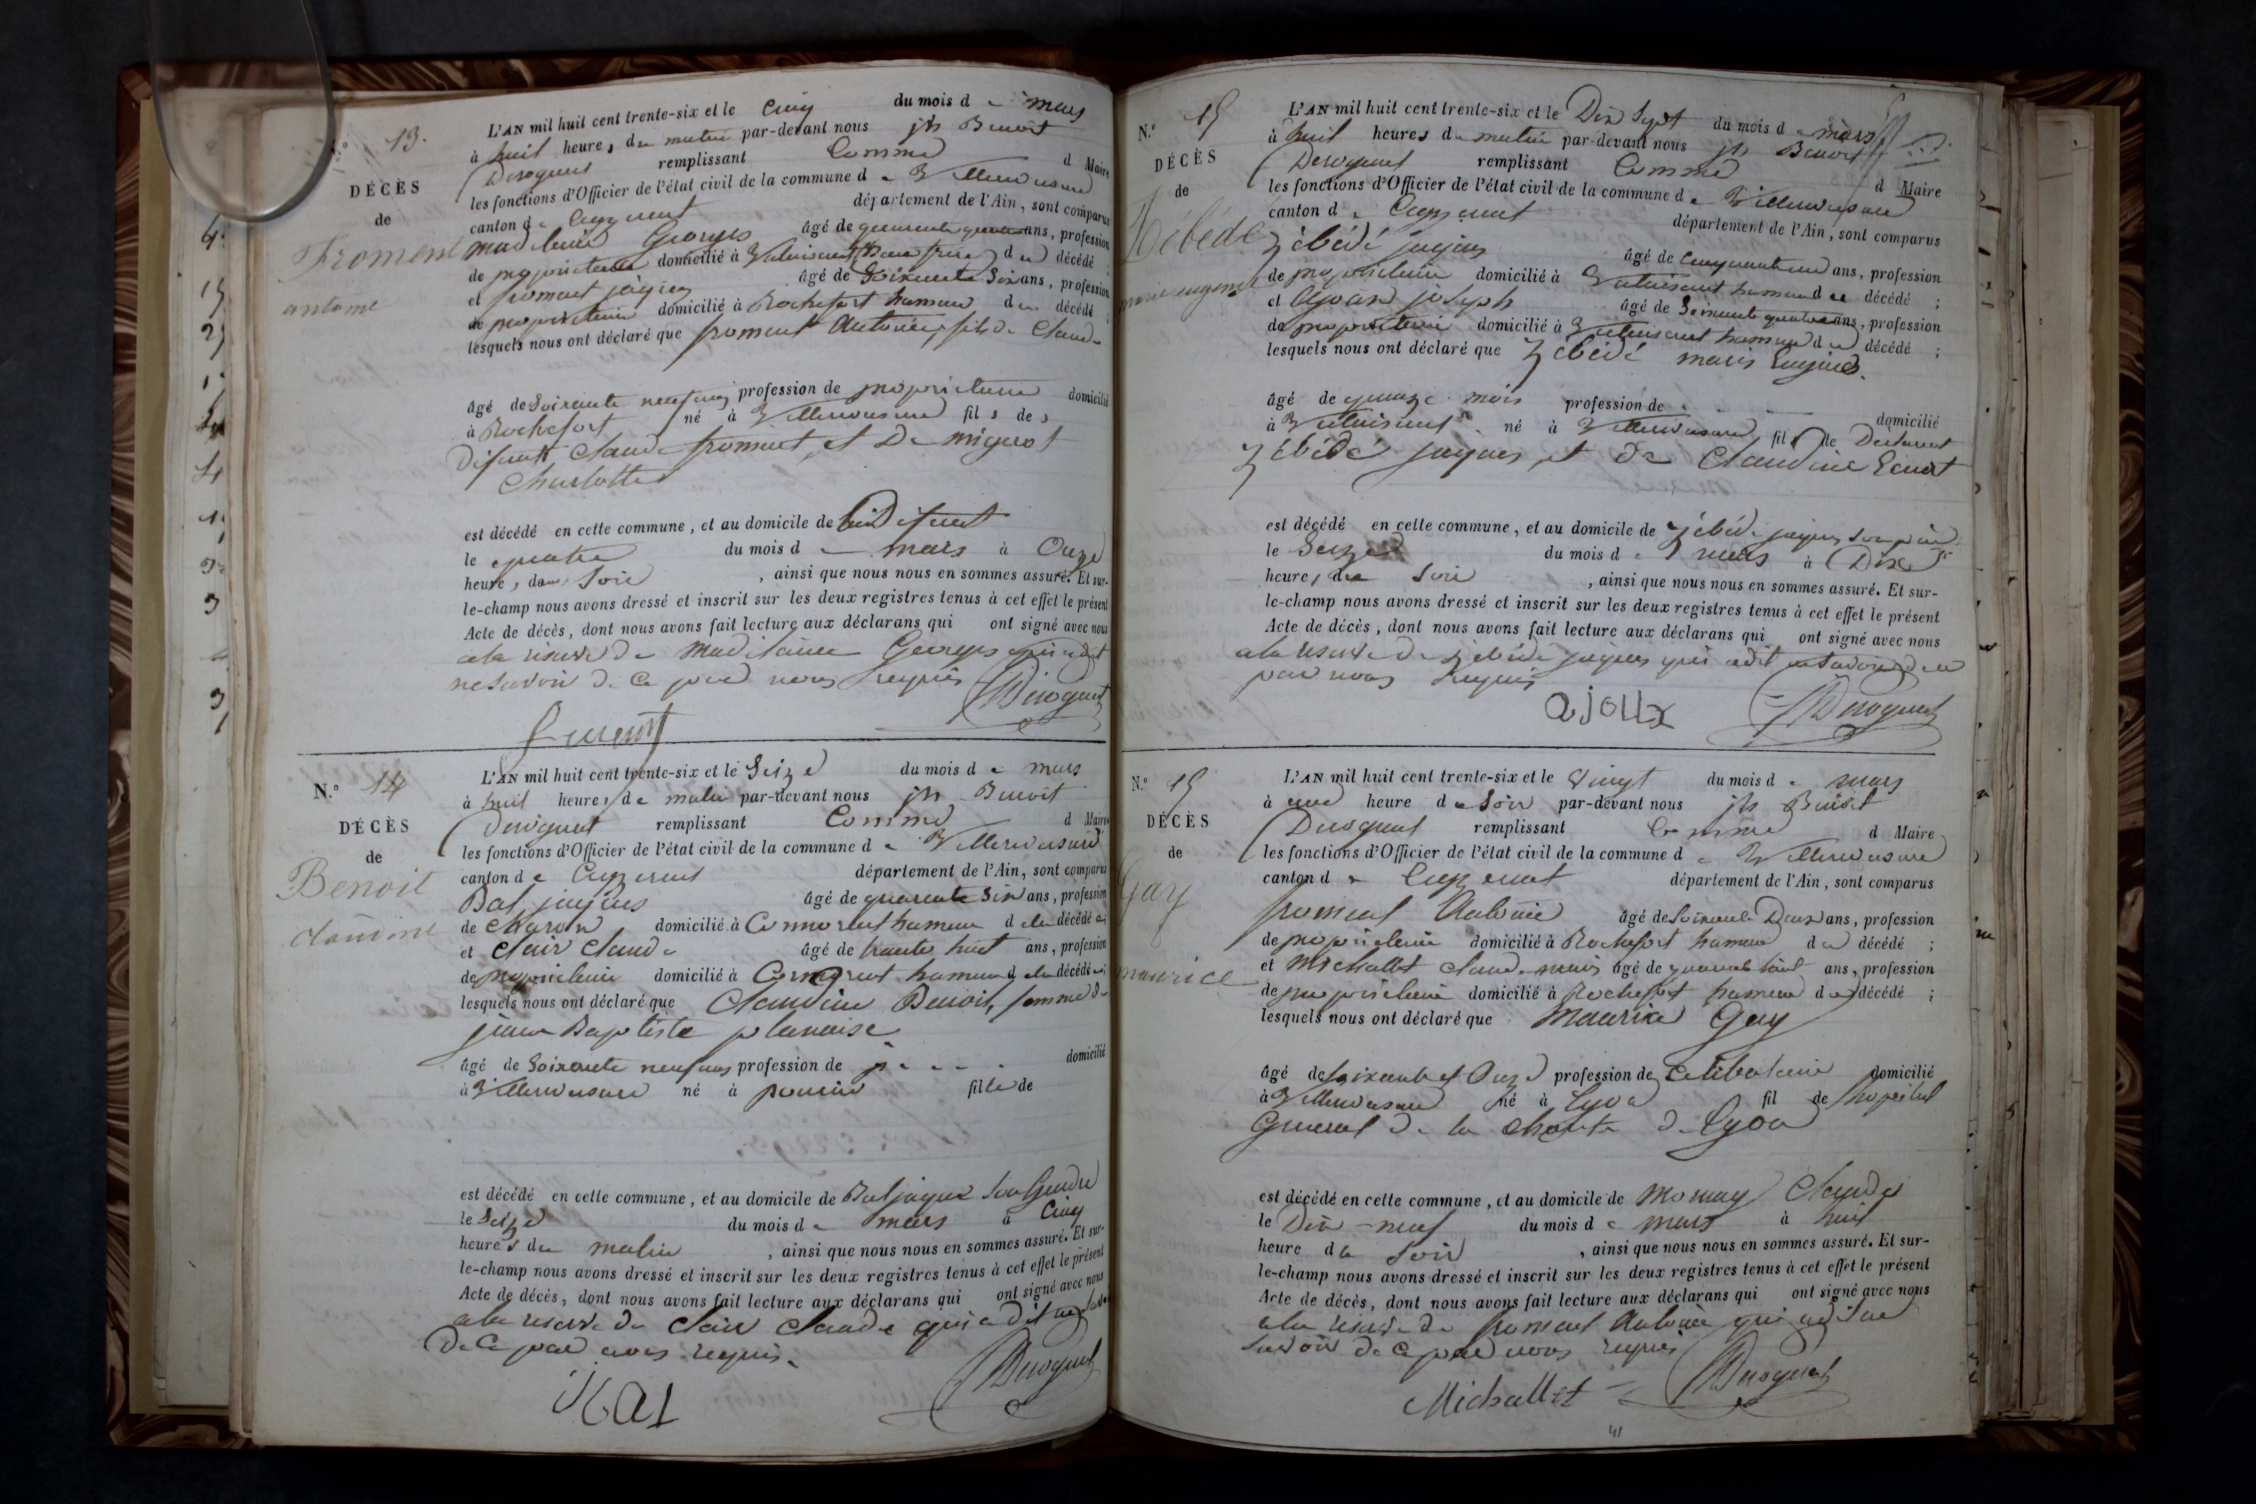 N.° 13.
DÉCÈS
de
Froment
antoine
L'AN mil huit cent trente-six et le cinq du mois d e mars
à huit heures du matin par-devant nous jh Benoit
Deroguet remplissant Comme d Maire
les fonctions d'Officier de l'état civil de la commune d e Villereversure
canton d e Ceyzeriat département de l'Ain, sont comparus
Georges âgé de quarante quatre ans, profession
de propriétaire domicilié à d u décédé ;
et froment jacques âgé de Soixante Six ans, profession
de propriétaire domicilié à Rochefort hameau du décédé ;
lesquels nous ont déclaré que froment Antoine, fils de Claude
âgé de Soixante neuf ans profession de propriétaire domicilié
à Rochefort né à Villereversure fils de
Défunt Claude froment, et De migrot
Charlotte
est décédé en cette commune, et au domicile de Défunt
le quatre du mois d e mars à Onze
heures du Soir, ainsi que nous nous en sommes assuré. Et sur-
le-champ nous avons dressé et inscrit sur les deux registres tenus à cet effet le présent
Acte de décès, dont nous avons fait lecture aux déclarans qui ont signé avec nous
ala reserve de Georges qui a dit
ne savoir de ce par nous requis Deroguet
froment
N.° 14
DÉCÈS
de
Benoit
claudine
L'AN mil huit cent trente-six et le Seize du mois d e mars
à huit heures de matin par-devant nous jh Benoit
Deroguet remplissant Comme d Maire
les fonctions d'Officier de l'état civil de la commune d e Villereversure
canton d e Ceyzeriat département de l'Ain, sont comparus
Bal jacques âgé de quarante Six ans, profession
de charon domicilié à hameau d ela décédée
et Clair Claude âgé de trente huit ans, profession
de propriétaire domicilié à hameau d ela décédée
lesquels nous ont déclaré que Claudine Benoit, femme de
jean Baptiste planaise
âgé de Soixante neuf ans profession de domicilié
à Villereversure né à poncin fille de
est décédé en cette commune, et au domicile de Bal jacques Son Gendre
le Seize du mois d e mars à Cinq
heures du matin, ainsi que nous nous en sommes assuré. Et sur-
le-champ nous avons dressé et inscrit sur les deux registres tenus à cet effet le présent
Acte de décès, dont nous avons fait lecture aux déclarans qui ont signé avec nous
ala reserve de Clair Claude qui a dit ne savoir
De Ce par nous requis. Deroguet
Bal
N.° 15
DÉCÈS
de
Zébédé
marie eugenie
L'AN mil huit cent trente-six et le Dix Sept du mois d e mars
à huit heures du matin par-devant nous jh Benoit
Deroguet remplissant Comme d Maire
les fonctions d'Officier de l'état civil de la commune d e Villereversure
canton d e Ceyzeriat département de l'Ain, sont comparus
Zébédé jacques âgé de cinquante un ans, profession
de propriétaire domicilié à hameau d u décédé ;
et Ajoux joseph âgé de Soixante quatre ans, profession
de propriétaire domicilié à hameau d u décédé ;
lesquels nous ont déclaré que Zébédé marie Eugénie
âgé de quinze mois profession de domicilié
à né à Villereversure fil de Déclarant
Zébédé jacques, et De Claudine
est décédé en cette commune, et au domicile de Zébédé jacques Son père
le Seize du mois d e mars à Dix
heures du Soir, ainsi que nous nous en sommes assuré. Et sur-
le-champ nous avons dressé et inscrit sur les deux registres tenus à cet effet le présent
Acte de décès, dont nous avons fait lecture aux déclarans qui ont signé avec nous
ala reserve de Zébédé jacques qui a dit ne Savoir de ce
par nous requis
ajoux Deroguet
N.° 15
DÉCÈS
de
Gay
maurice
L'AN mil huit cent trente-six et le vingt du mois d e mars
à une heure d u Soir par-devant nous jh Benoit
Deroguet remplissant Comme d Maire
les fonctions d'Officier de l'état civil de la commune d e Villereversure
canton d e Ceyzeriat département de l'Ain, sont comparus
froment Antoine âgé de Soixante Deux ans, profession
de propriétaire domicilié à Rochefort hameau d u décédé ;
et Michallet Claude marie âgé de quarante huit ans, profession
de propriétaire domicilié à Rochefort hameau d u décédé ;
lesquels nous ont déclaré que Maurice Gay
âgé de Soixante et Onze profession de Celibataire domicilié
à Villereversure né à Lyon fil de hopital
General De la charité De Lyon
est décédé en cette commune, et au domicile de Mornay Claude
le Dix-neuf du mois d e mars à huit
heure du Soir, ainsi que nous nous en sommes assuré. Et sur-
le-champ nous avons dressé et inscrit sur les deux registres tenus à cet effet le présent
Acte de décès, dont nous avons fait lecture aux déclarans qui ont signé avec nous
ala reserve de froment Antoine qui a dit ne
Savoir De ce par nous requis Deroguet
Michallet
41